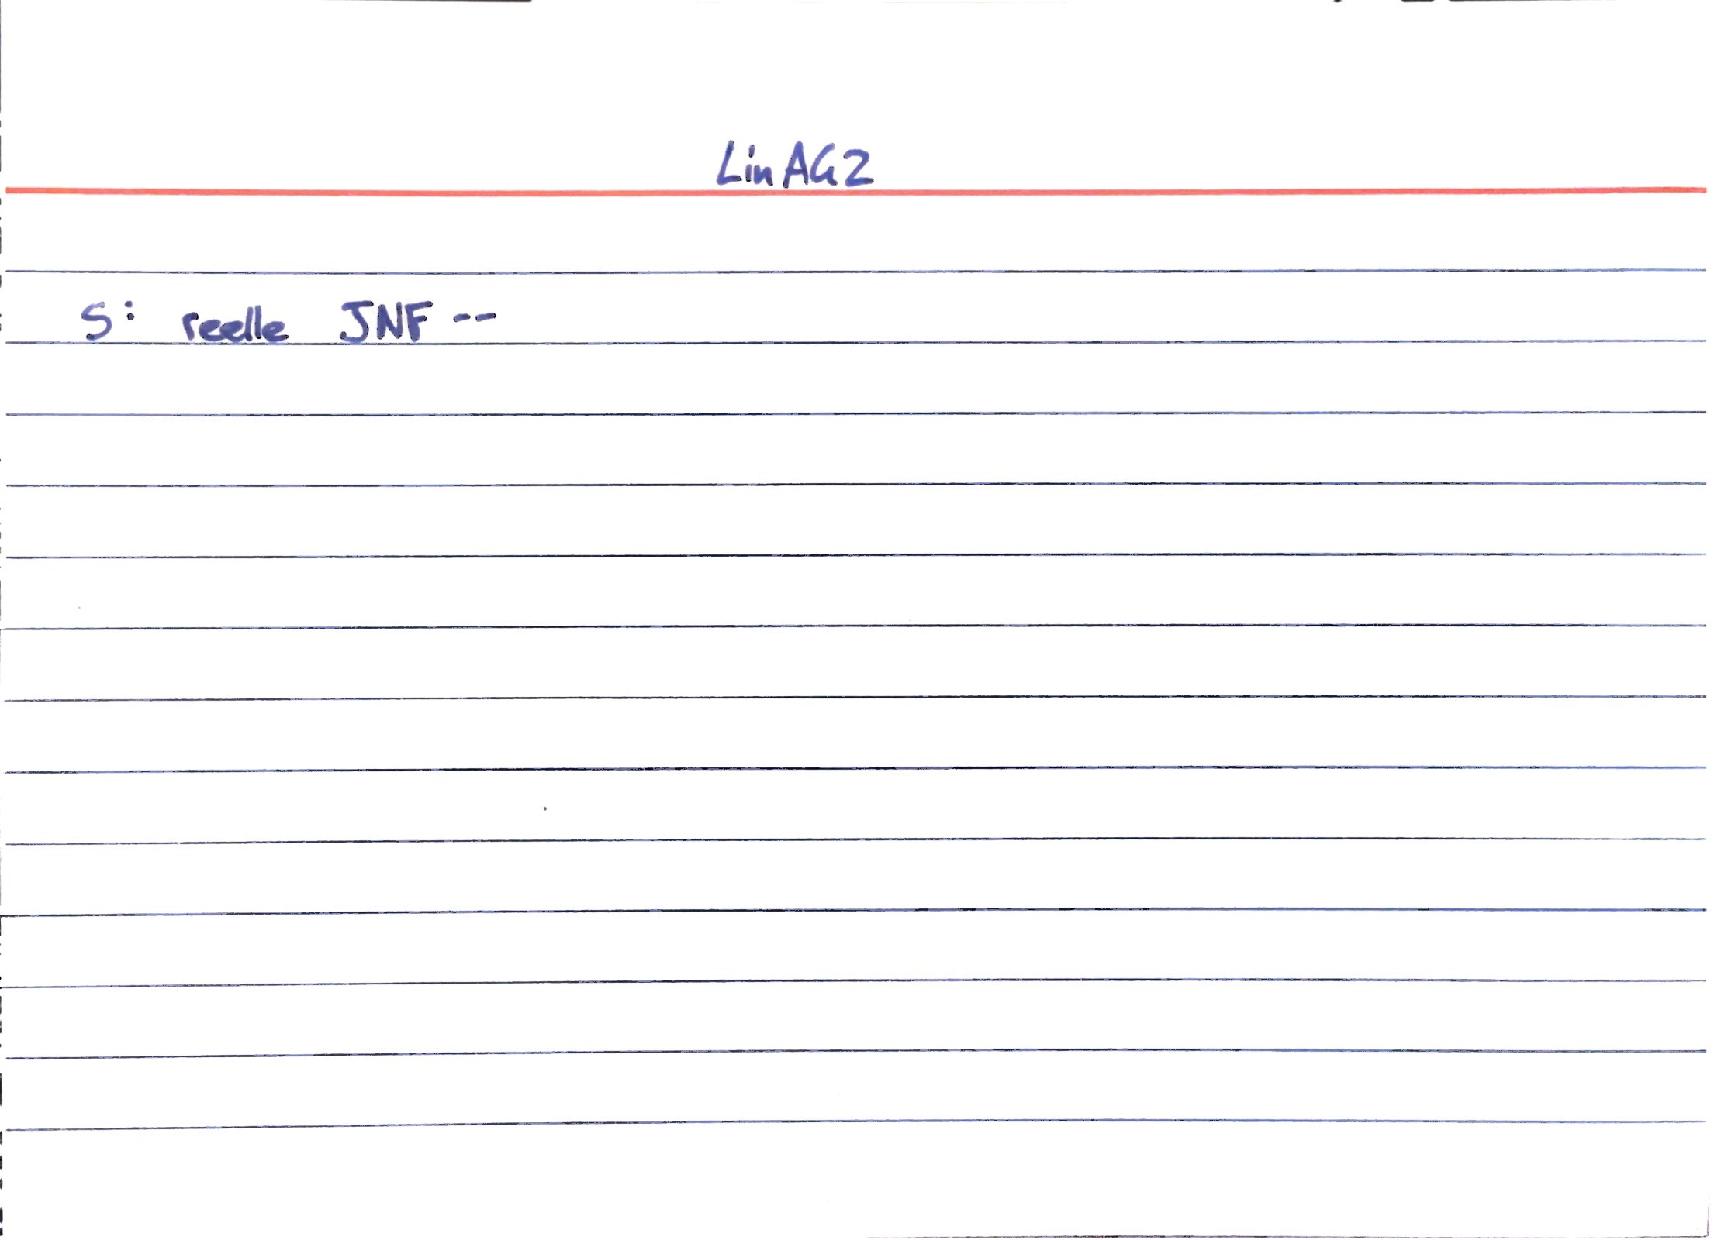 LinAG2
S: reelle JNF --